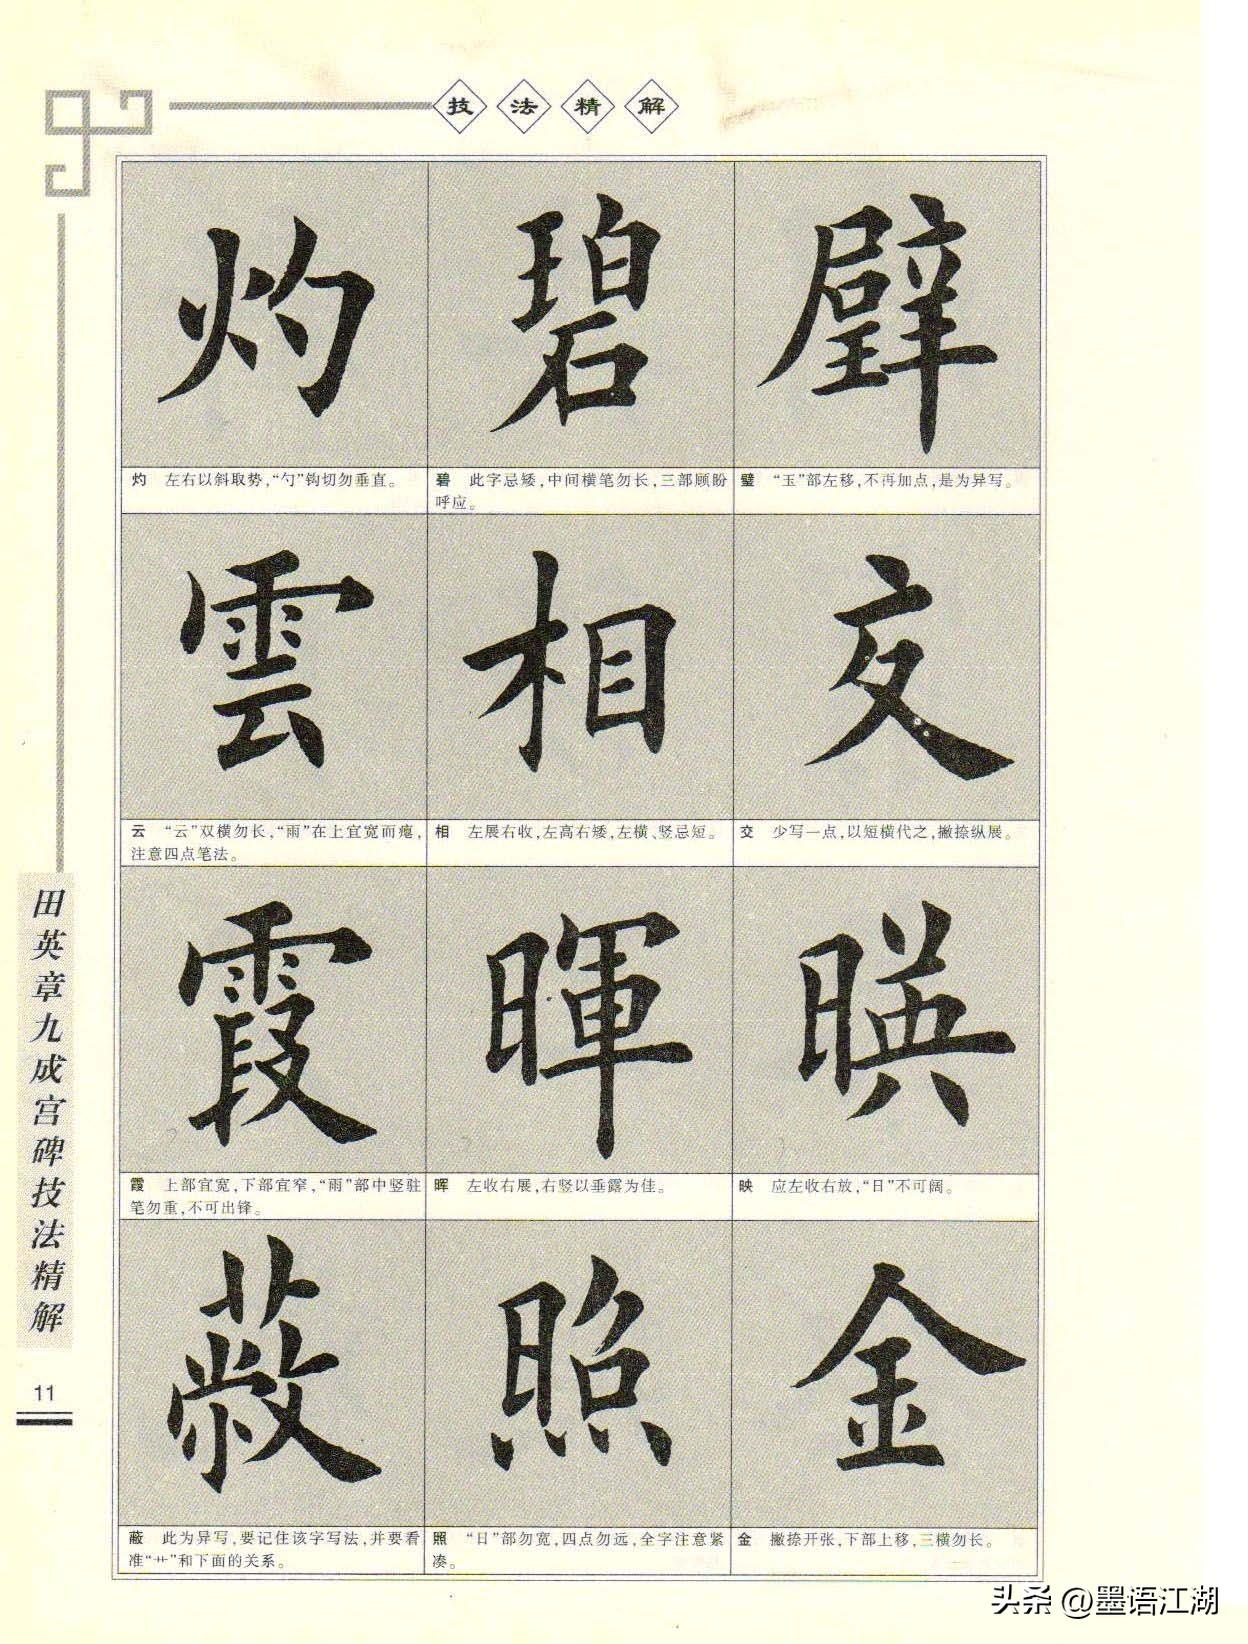 技法精解
灼 碧 璧
灼 左右以斜取势，“勺”钩切勿垂直。
碧 此字忌矮，中间横笔勿长，三部顾盼
呼应。
璧 “玉”部左移，不再加点，是为异写。
雲 相 交
云 “云”双横勿长，“雨”在上宜宽而瘪，
注意四点笔法。
相 左展右收，左高右矮，左横、竖忌短。
交 少写一点，以短横代之，撇捺纵展。
霞 暉 暎
霞 上部宜宽，下部宜窄，“雨”部中竖驻
笔勿重，不可出锋。
晖 左收右展，右竖以垂露为佳。
映 应左收右放，“日”不可阔。
蔽 照 金
蔽 此为异写，要记住该字写法，并要看
准“艹”和下面的关系。
照 “日”部勿宽，四点勿远，全字注意紧
凑。
金 撇捺开张，下部上移，三横勿长。
田英章九成宫碑技法精解
11
头条 @墨语江湖